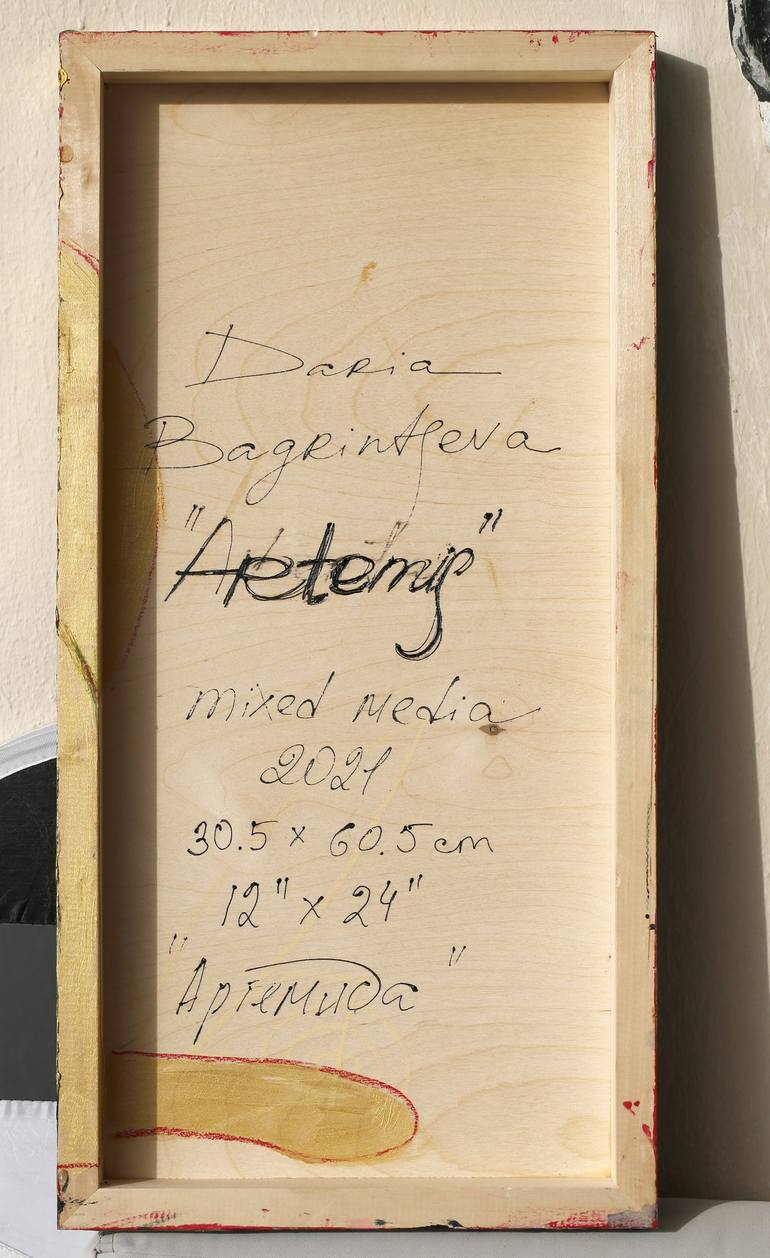 Daria
Bagrintseva
"Artemis"
mixed media
2021
30.5 x 60.5 cm
12" x 24"
"Артемида"